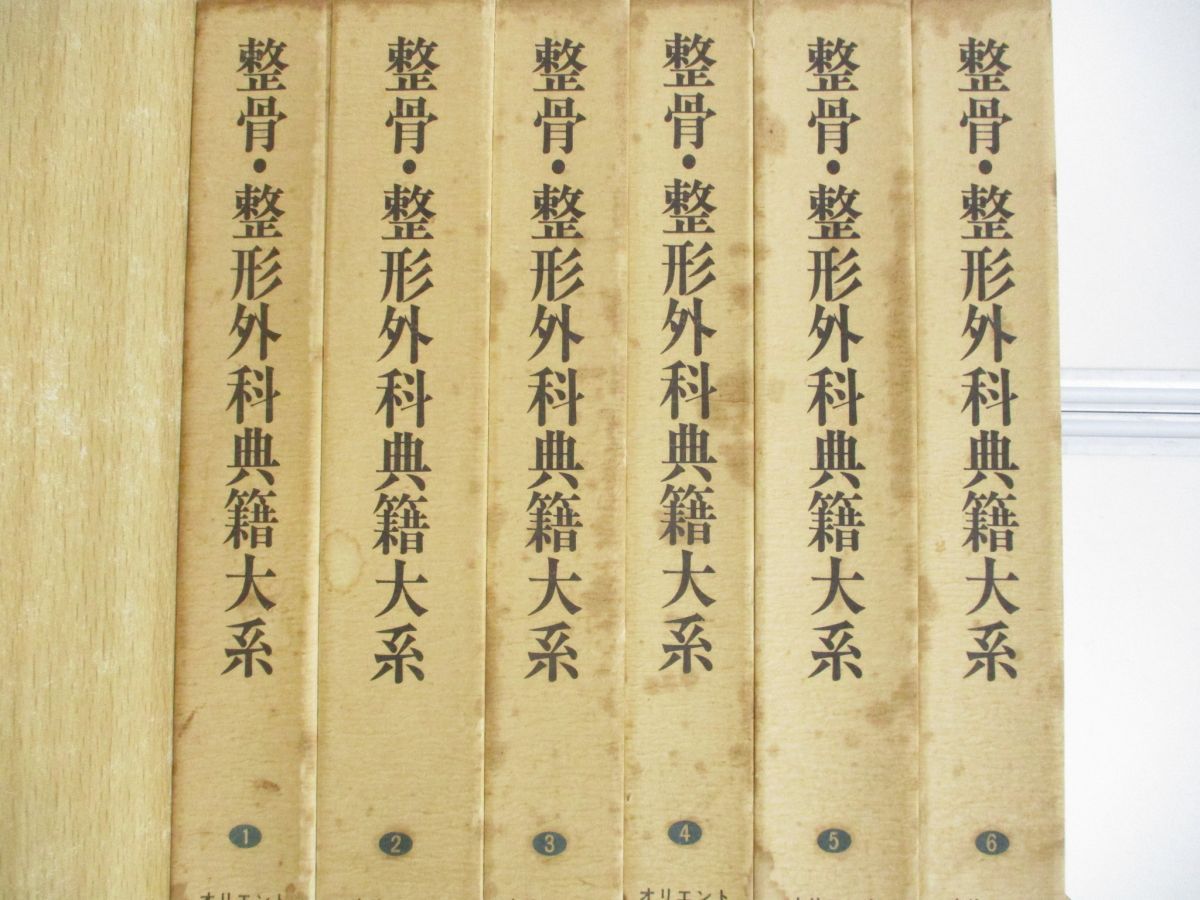 整骨・整形外科典籍大系
1
オリエント
整骨・整形外科典籍大系
2
整骨・整形外科典籍大系
3
整骨・整形外科典籍大系
4
オリエント
整骨・整形外科典籍大系
5
整骨・整形外科典籍大系
6